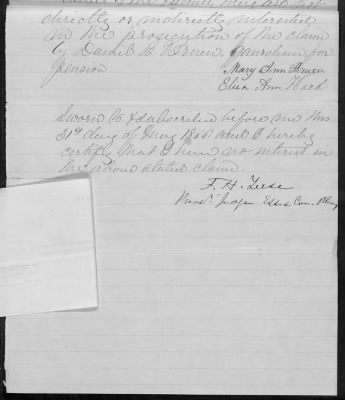 directly or indirectly interested
in the prosecution of the claim
by Daniel B. Bruen, Guardian for
pension
Mary Ann Bruen
Eliza Ann
Sworn to & subscribed before me this
31st day of Aug 1865 and I hereby
certify that I have no interest in
the above stated claim.
F. H. Teese
Presdt. Judge Essex Com. Pleas